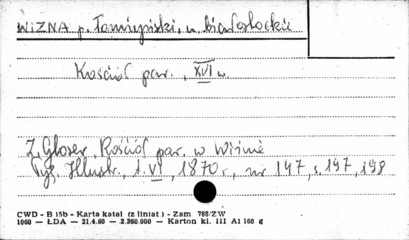 WIZNA p. Łomżyński, w. białostockie
Kościół par., XVI w.
Z. Gloger, Kościół par. w Wiźnie
Tyg. Illustr., t. VI, 1870 r., nr 147, s. 197, 198
CWD - B 15b - Karta katal (z liniat) - Zam 788/ZW
1060 — ŁDA — 21.4.60 — 2.360.000 — Karton kl. III A1 160 g